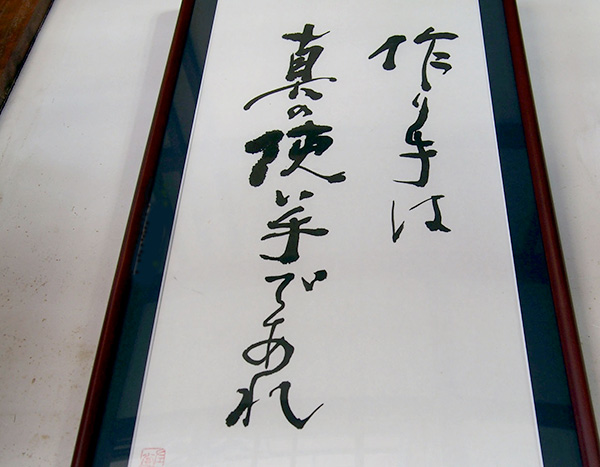 作り手は
真の使い手であれ